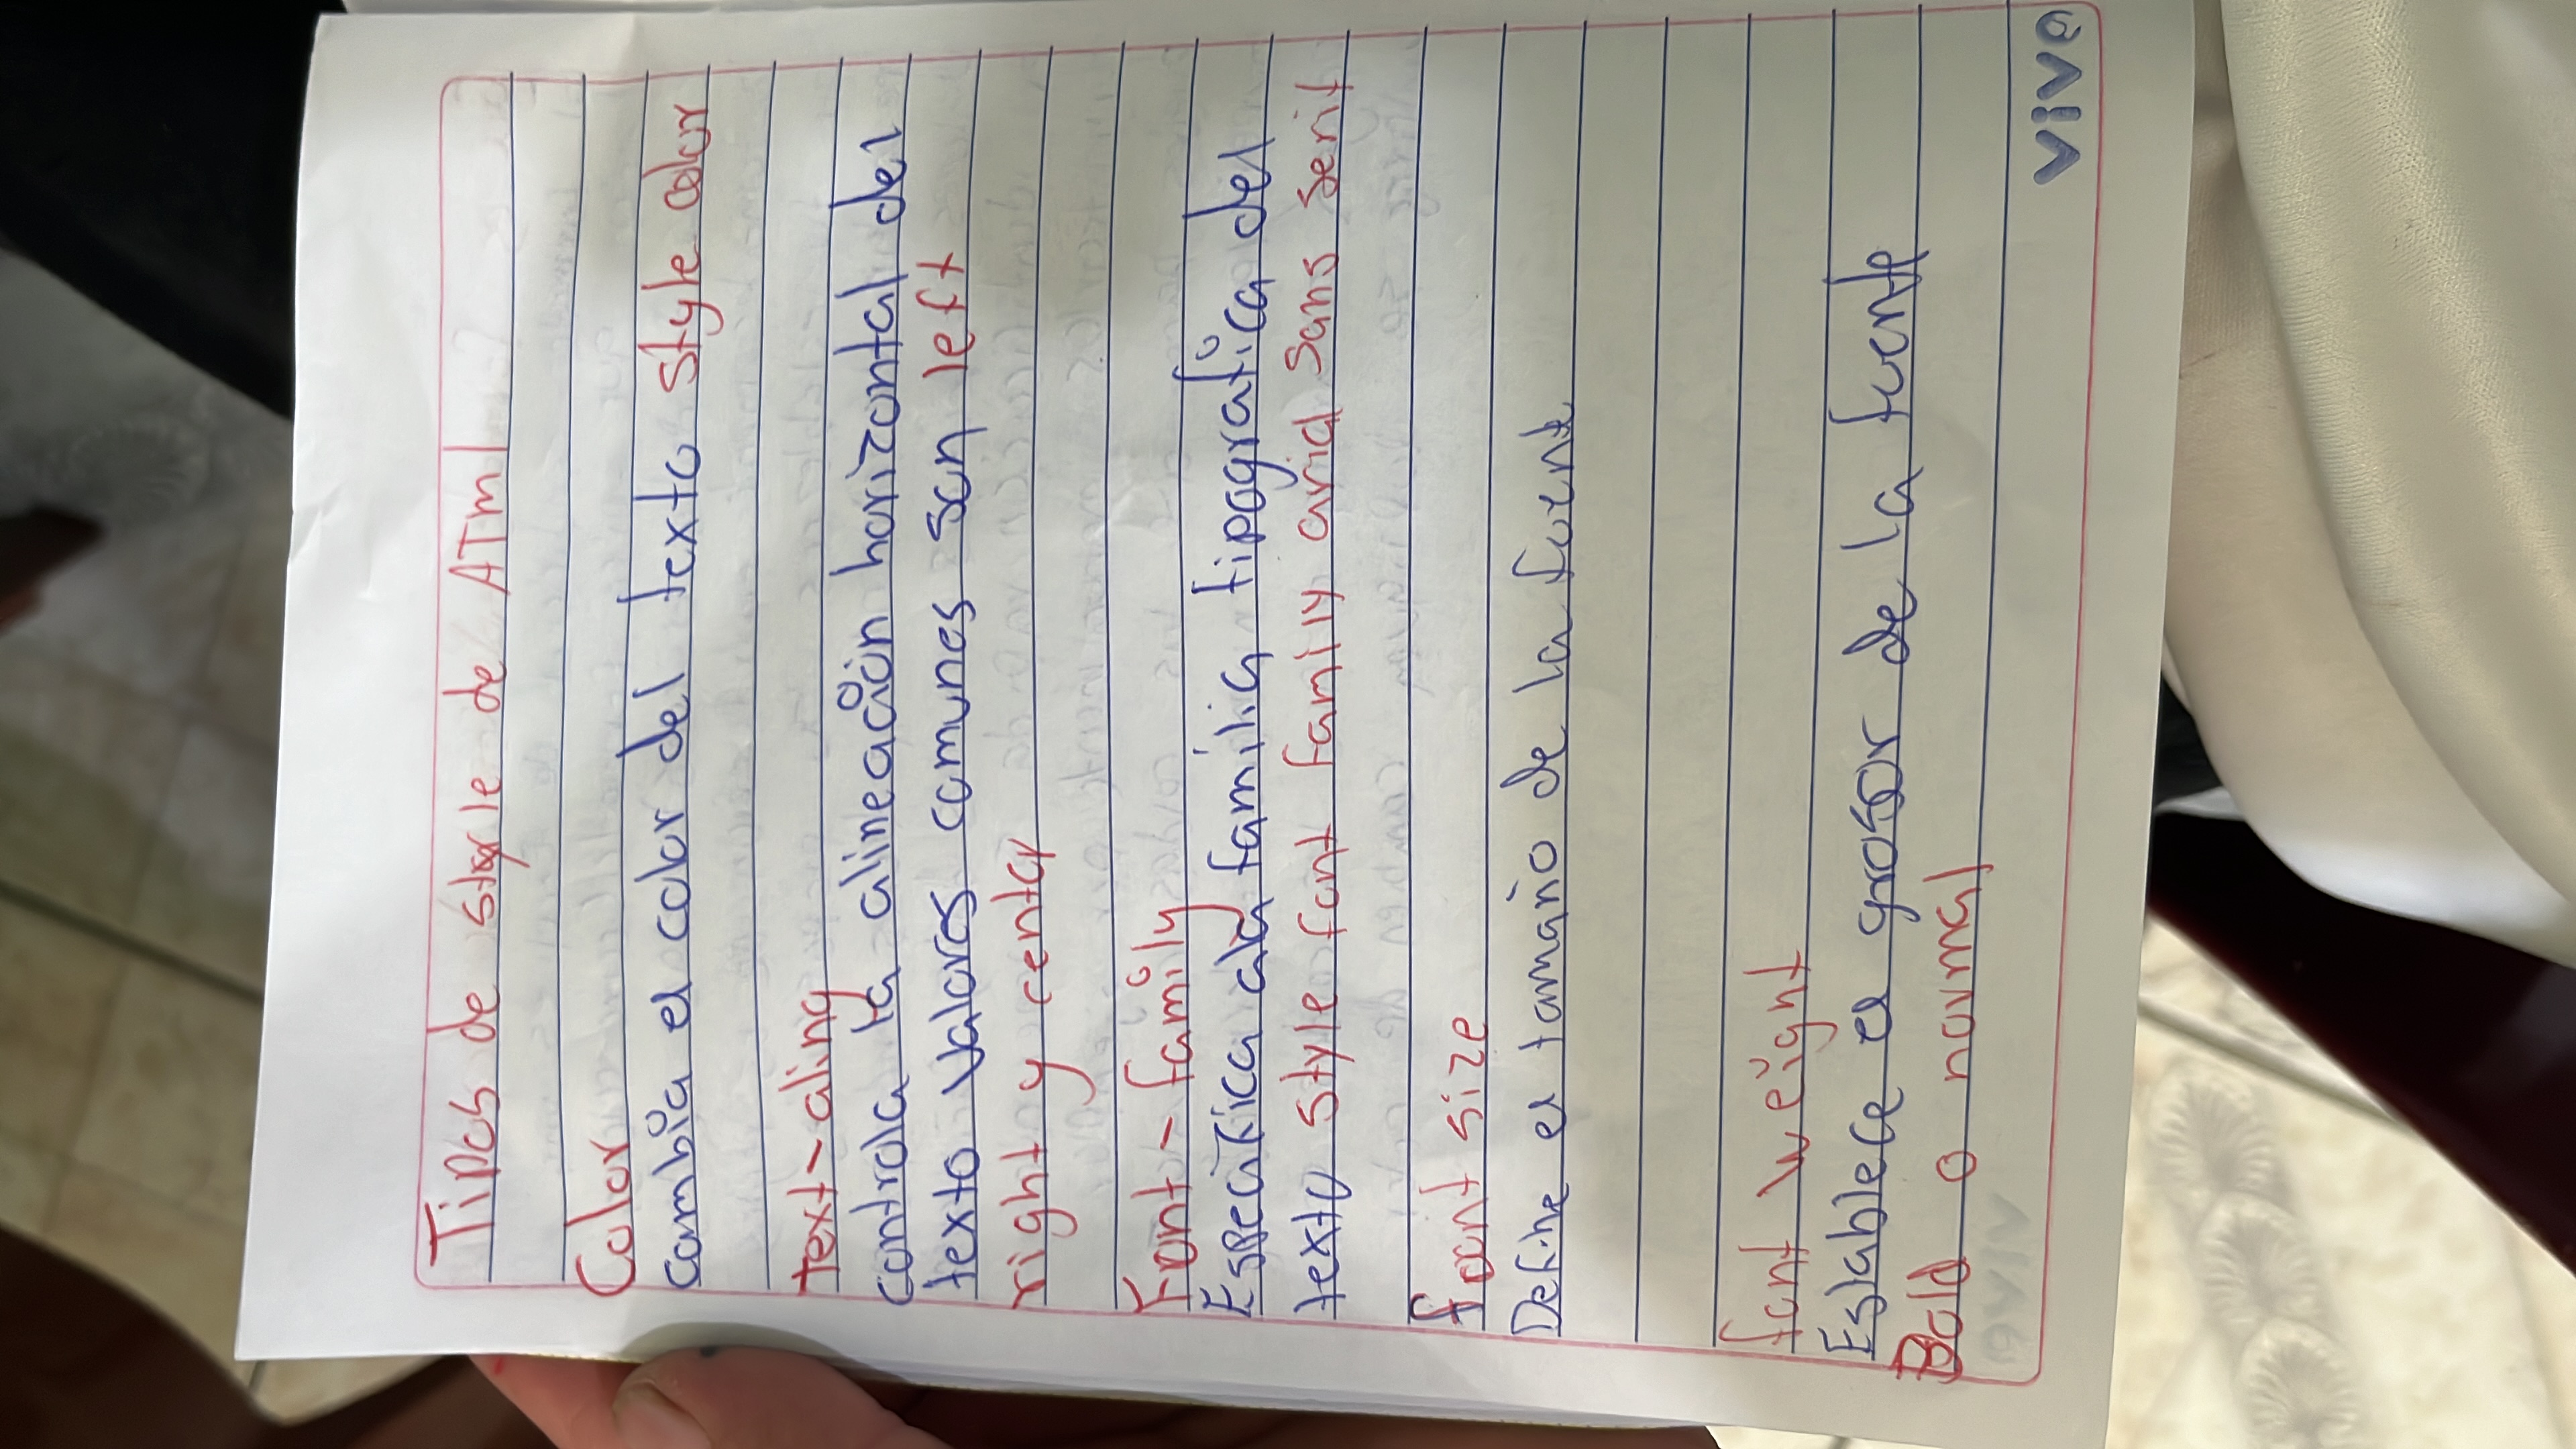 Tipos de style de ATml
Color
Cambia el color del texto style color
text-aling
controla la alineación horizontal del
texto valores comunes son left
right y center
Font-family
Especifica ala familia tipografica del
texto style font family arial sans serif
font size
Define el tamaño de la fuente
font weight
Establece el grosor de la fuente
Bold o normal
vivo